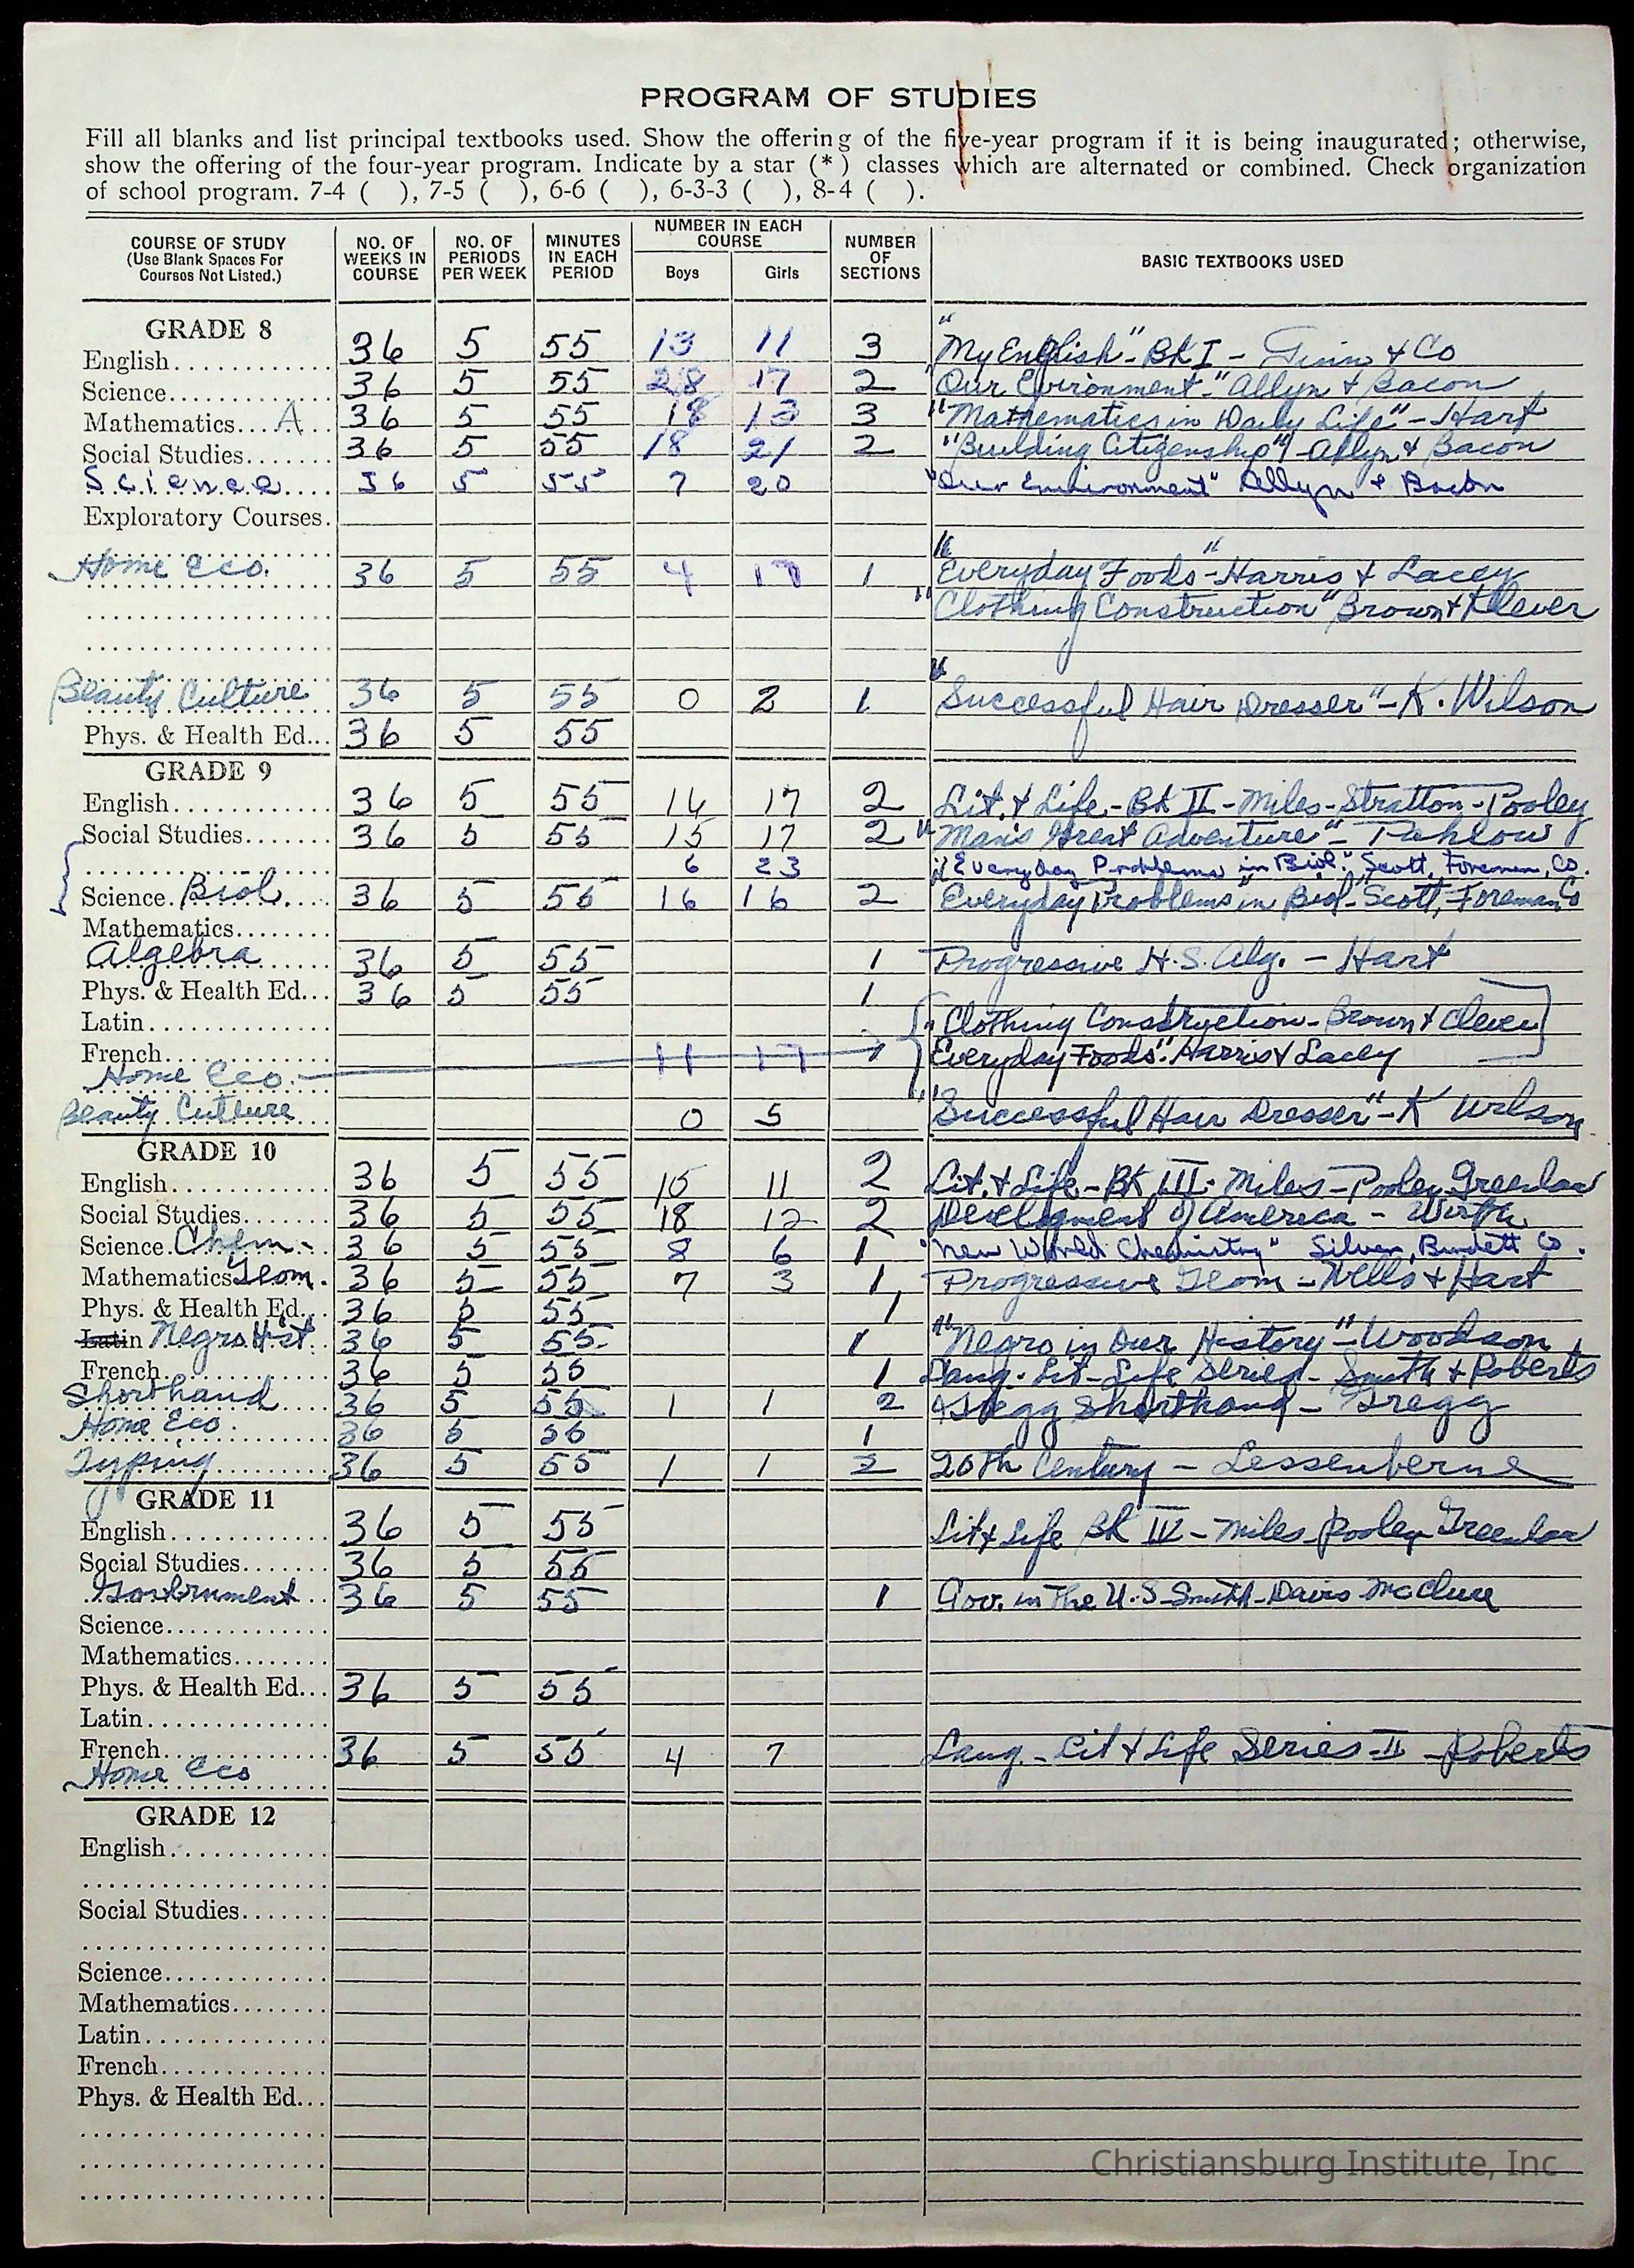 PROGRAM OF STUDIES
Fill all blanks and list principal textbooks used. Show the offering of the five-year program if it is being inaugurated; otherwise,
show the offering of the four-year program. Indicate by a star (*) classes which are alternated or combined. Check organization
of school program. 7-4 ( ), 7-5 ( ), 6-6 ( ), 6-3-3 ( ), 8-4 ( ).
COURSE OF STUDY (Use Blank Spaces For Courses Not Listed.) NO. OF WEEKS IN COURSE NO. OF PERIODS PER WEEK MINUTES IN EACH PERIOD NUMBER IN EACH COURSE Boys Girls NUMBER OF SECTIONS BASIC TEXTBOOKS USED
GRADE 8
English............ 36 5 55 13 11 3 "My English" - Bk I - Ginn & Co
Science............ 36 5 55 28 17 2 "Our Evironment" - Allyn & Bacon
Mathematics.... A.. 36 5 55 18 13 3 "Mathematics in Daily Life" - Hart
Social Studies....... 36 5 55 18 21 2 "Building Citizenship" - Allyn & Bacon
Science.... 36 5 55 7 20 "Our Environment" Allyn & Bacon
Exploratory Courses.
Home Eco. 36 5 55 4 17 1 "Everyday Foods" - Harris & Lacey
"Clothing Construction" Brown & Klever
Beauty Culture 36 5 55 0 2 1 "Successful Hair Dresser" - K. Wilson
Phys. & Health Ed... 36 5 55
GRADE 9
English............ 36 5 55 14 17 2 Lit. & Life - Bk II - Miles - Stratton - Pooley
Social Studies....... 36 5 55 15 17 2 "Man's Great Adventure" - Pahlow
6 23 "Everyday Problems in Biol." Scott, Foreman, Co.
Science. Biol.... 36 5 55 16 16 2 Everyday Problems in Biol - Scott, Foreman Co
Mathematics........
Algebra 36 5 55 1 Progressive H.S. Alg. - Hart
Phys. & Health Ed... 36 5 55 1
Latin............. "Clothing Construction - Brown & Clever
French............ 11 17 1 Everyday Foods". Harris & Lacey
Home Eco.
Beauty Culture... 0 5 "Successful Hair Dresser" - K Wilson
GRADE 10
English............ 36 5 55 15 11 2 Lit. & Life - Bk III - Miles - Pooley Greenlaw
Social Studies....... 36 5 55 18 12 2 Development of America - Wirth
Science. Chem. 36 5 55 8 6 1 "New World Chemistry" Silver, Burdett Co.
Mathematics Geom. 36 5 55 7 3 1 Progressive Geom - Wells & Hart
Phys. & Health Ed... 36 5 55 1
Latin Negro Hist. 36 5 55 1 "Negro in Our History" - Woodson
French............ 36 5 55 1 Lang. Lit - Life Series - Smith & Roberts
Shorthand 36 5 55 1 1 2 Gregg Shorthand - Gregg
Home Eco. 36 5 56 1
Typing 36 5 55 1 1 2 20th Century - Lessenberrie
GRADE 11
English............ 36 5 55 Lit & Life Bk IV - Miles Pooley Greenlaw
Social Studies....... 36 5 55
Government 36 5 55 1 Gov. in the U.S Smith - Davis - McClure
Science............
Mathematics........
Phys. & Health Ed... 36 5 55
Latin.............
French............ 36 5 55 4 7 Lang. - Lit & Life Series - II - Roberts
Home Eco
GRADE 12
English............
Social Studies.......
Science............
Mathematics........
Latin.............
French............
Phys. & Health Ed...
Christiansburg Institute, Inc